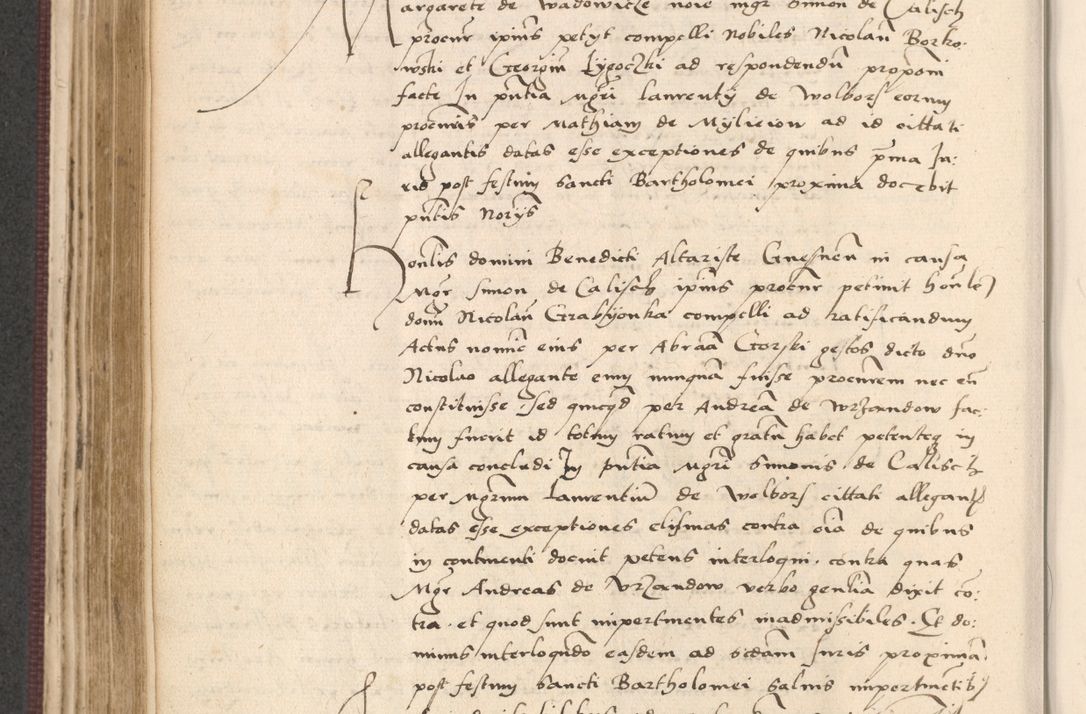 Margarete de Wadowicze noie mgr Simon de Calisch
procur ipius petyt compelli Nobiles Nicolau Borko:
wski et Georgiu Lygoczki ad respondendu proponi
facte In pntia Mgri Laurentij de Wolbors eorum
procuris per Mathiam de Myliciow ad id cittati
allegantis datas esse exceptiones de quibus pma Iu:
ris post festum Sancti Bartholomei proxima docebit
pntis Norijs
Honlis domini Benedicti Altariste Gnesnen in causa
Mgr Simon de Calisch ipius procur petiuit honle
donu Nicolau Grabyonka compelli ad ratificandum
Actus nomie eius per Abraa Gorski gestos dicto dno
Nicolao allegante eum nunqua fuisse procurem nec eu
constituisse, sed quicqd per Andrea de Wrzandow fac:
tum fuerit id totum ratum et gratu habet petensq in
causa concludi In pntia Mgri Simonis de Calisch
per Mgrum Laurentiu de Wolbors cittati allegant
datas esse exceptiones elisiuas contra oia de quibus
in continenti docuit petens interloqui. contra quas
Mgr Andreas de Wrzandow verbo genlia dixit co:
tra. et quod sunt impertinentes inadmissibiles. Et do:
minus interloqndo easdem ad secdam Iuris proxima
post festum Sancti Bartholomei Saluis impertinetib